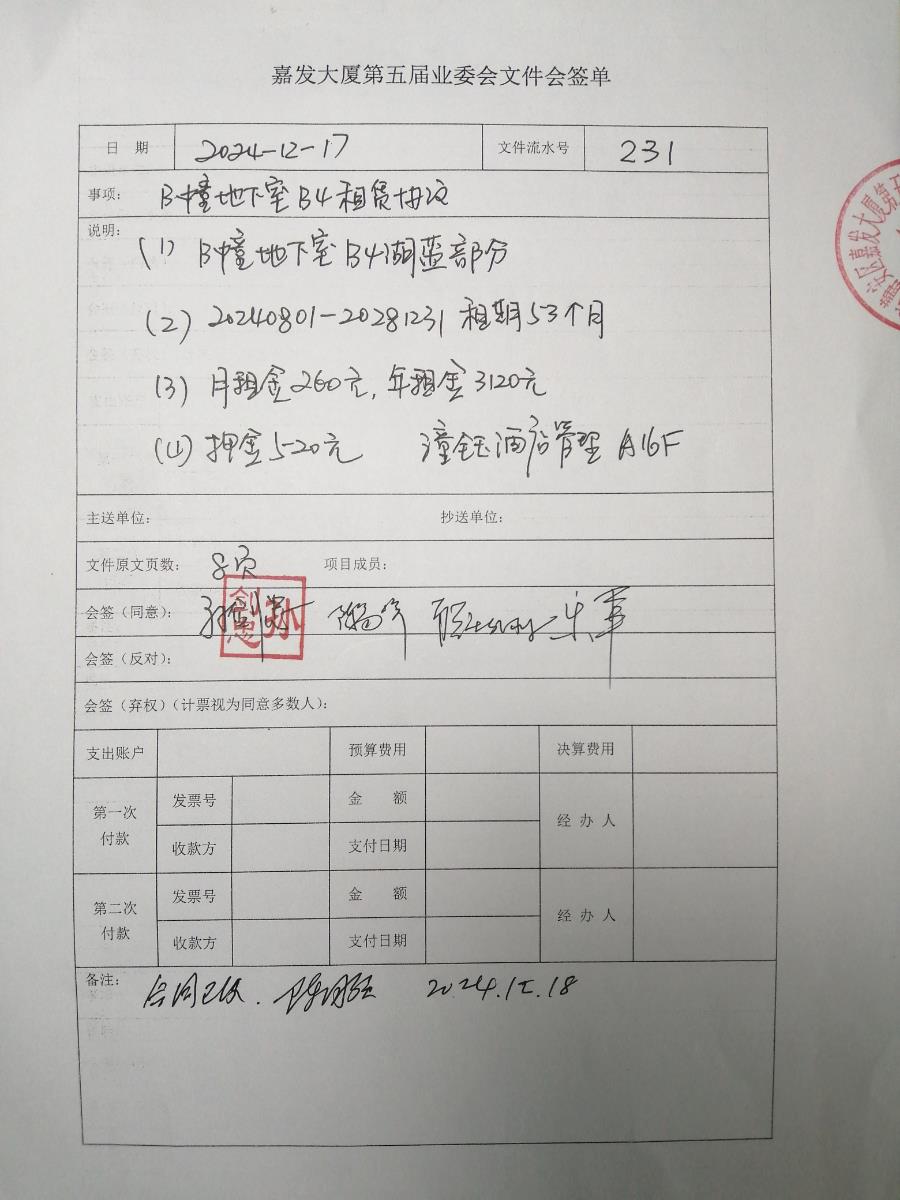 嘉发大厦第五届业委会文件会签单
日 期 2024-12-17 文件流水号 231
事项： B幢地下室B4租赁协议
说明：
(1) B幢地下室B4湖蓝部分
(2) 20240801-20281231 租期53个月
(3) 月租金260元，年租金3120元
(4) 押金520元 潼钰酒店管理 A16F
主送单位： 抄送单位：
文件原文页数： 8页 项目成员：
会签（同意）：
会签（反对）：
会签（弃权）（计票视为同意多数人）：
支出账户 预算费用 决算费用
第一次付款 发票号 金 额 经 办 人
收款方 支付日期
第二次付款 发票号 金 额 经 办 人
收款方 支付日期
备注： 合同已收. 2024.12.18
嘉发大厦第五